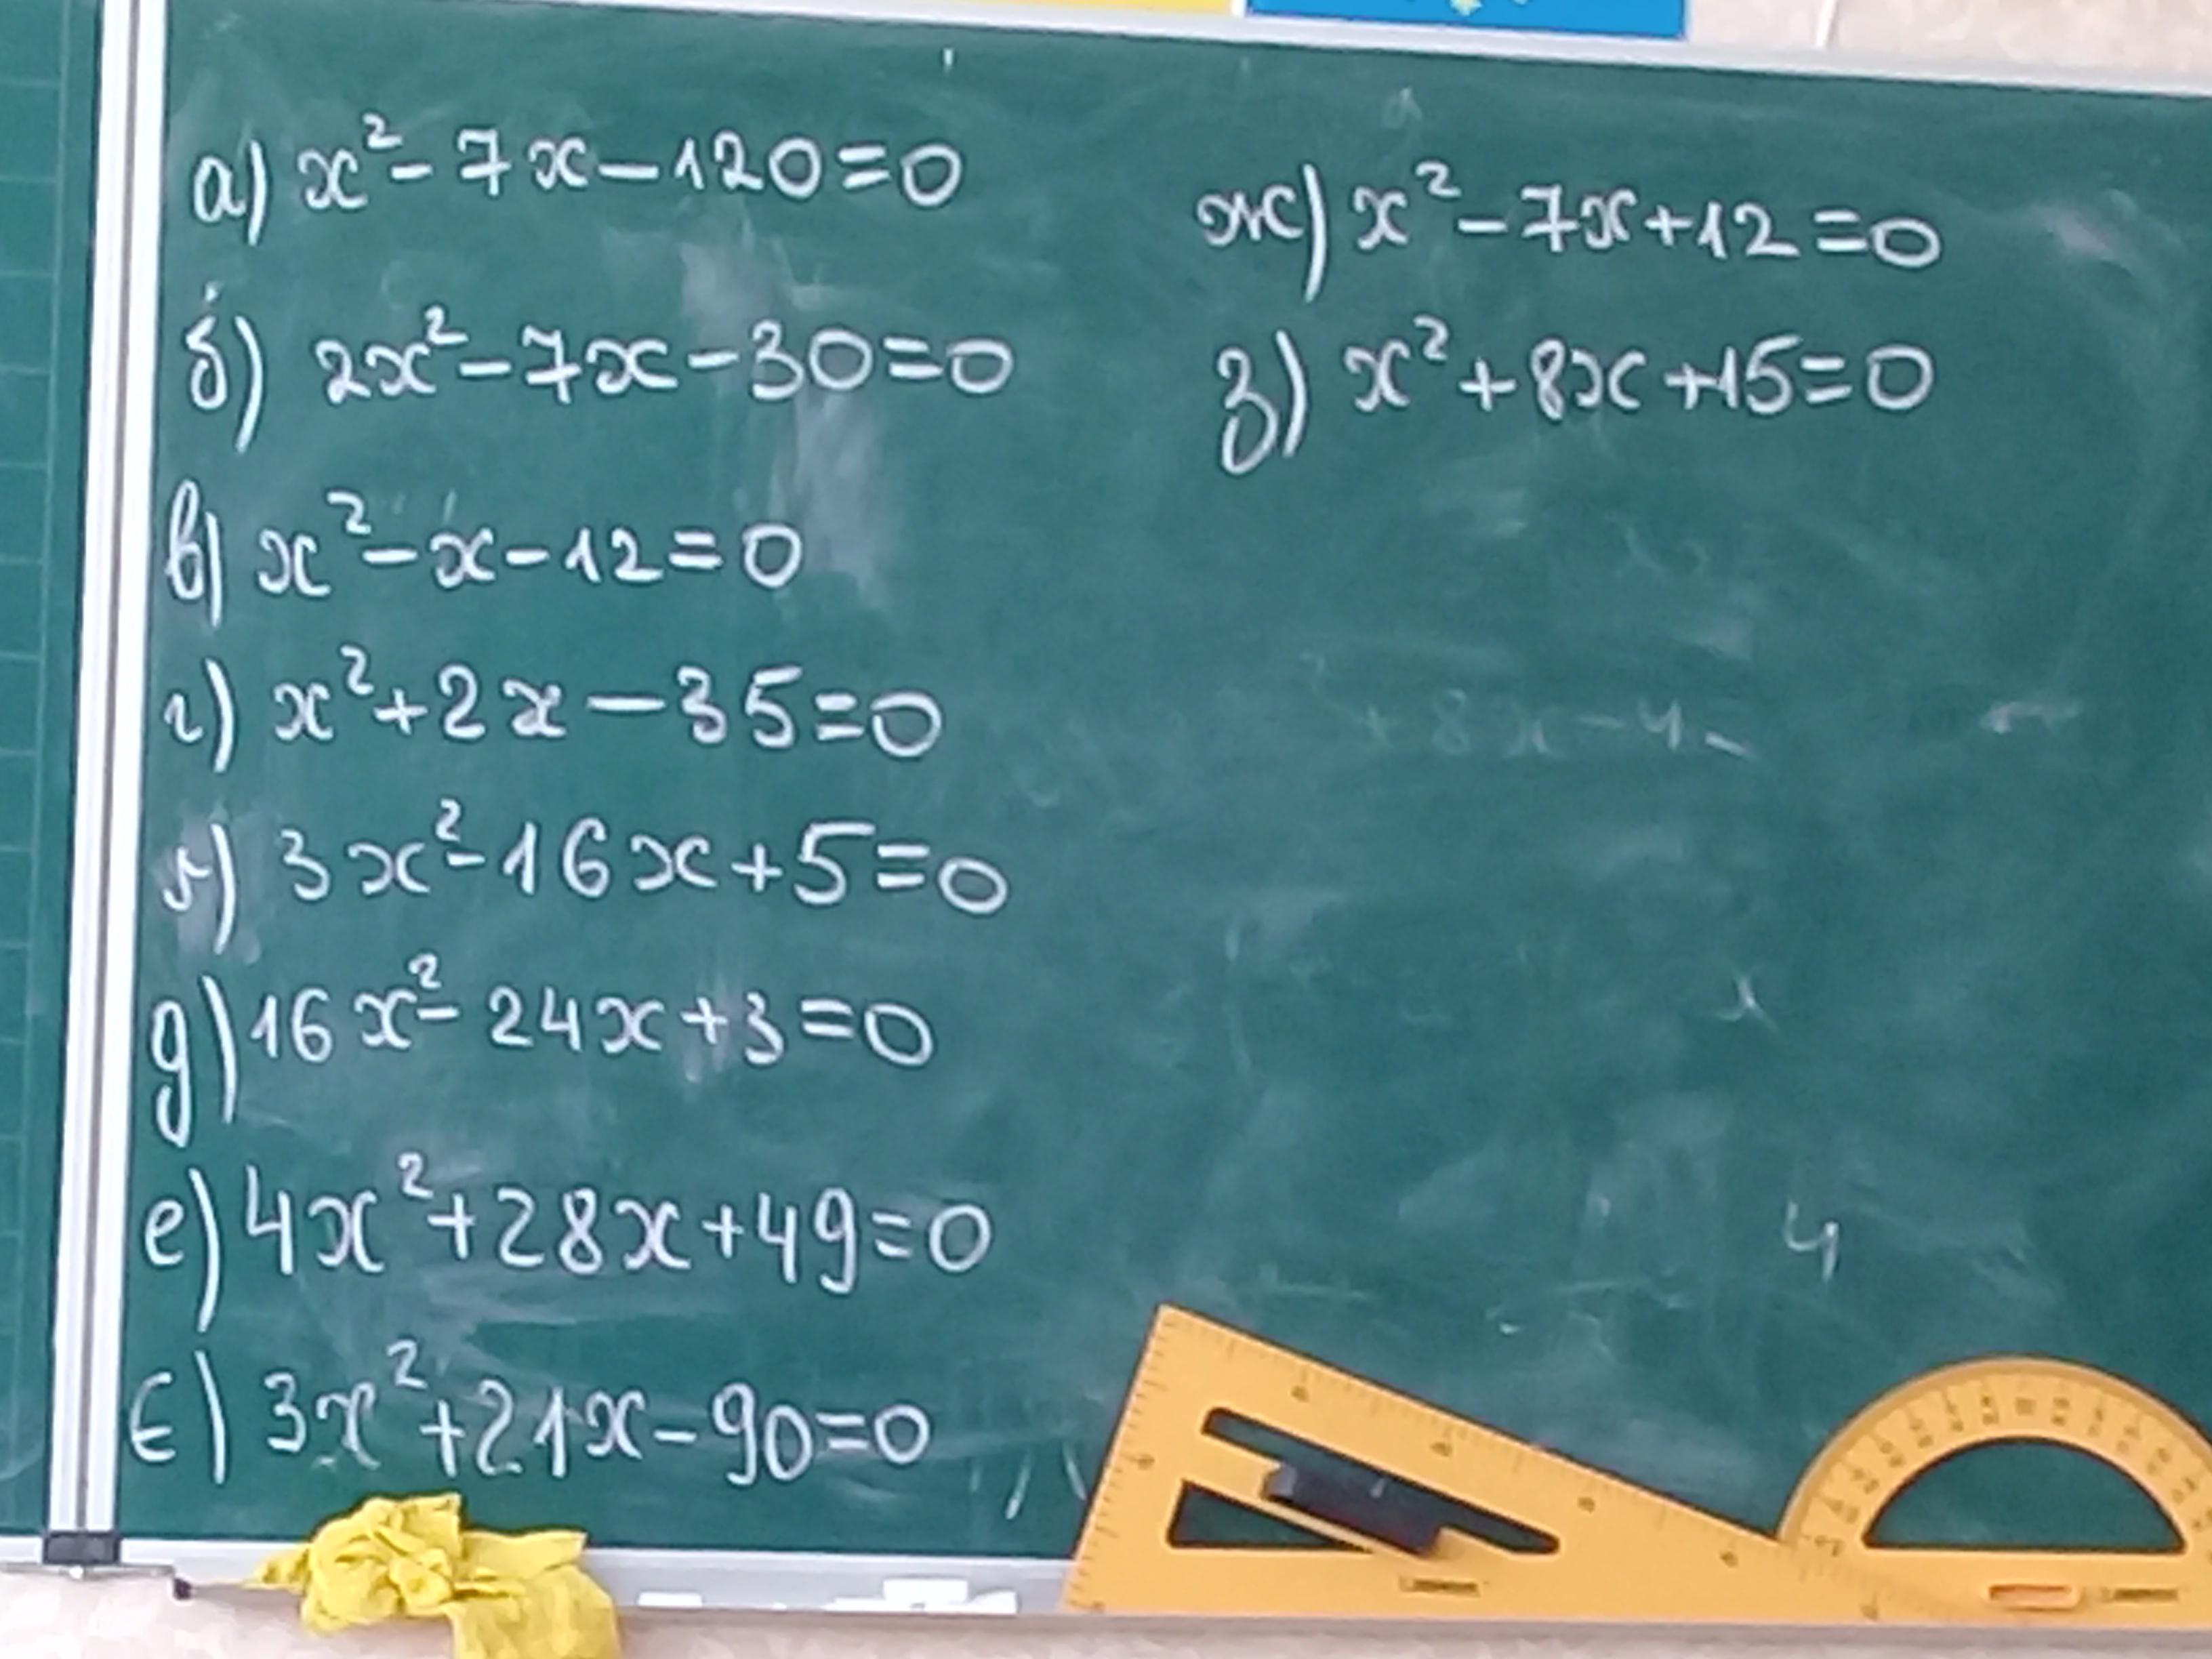 а) x² - 7x - 120 = 0
б) 2x² - 7x - 30 = 0
в) x² - x - 12 = 0
г) x² + 2x - 35 = 0
ґ) 3x² - 16x + 5 = 0
д) 16x² - 24x + 3 = 0
е) 4x² + 28x + 49 = 0
є) 3x² + 21x - 90 = 0
ж) x² - 7x + 12 = 0
з) x² + 8x + 15 = 0
+ 8x - 4
4